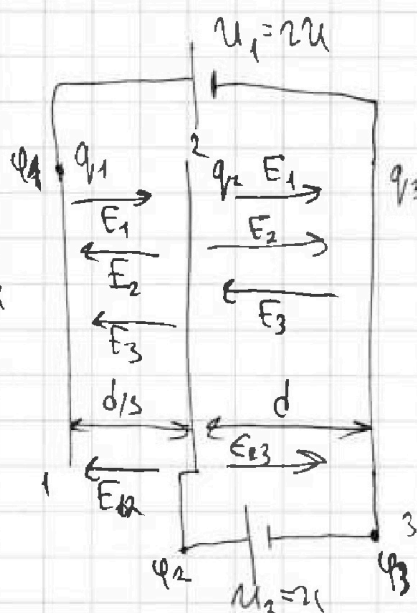 U₁=2U
2
φ₁ q₁ q₂ E₁ q₃
E₁
E₂ E₂
E₃ E₃
d/3 d
E₁₂ E₂₃
1 3
φ₂ φ₃
U₂=U